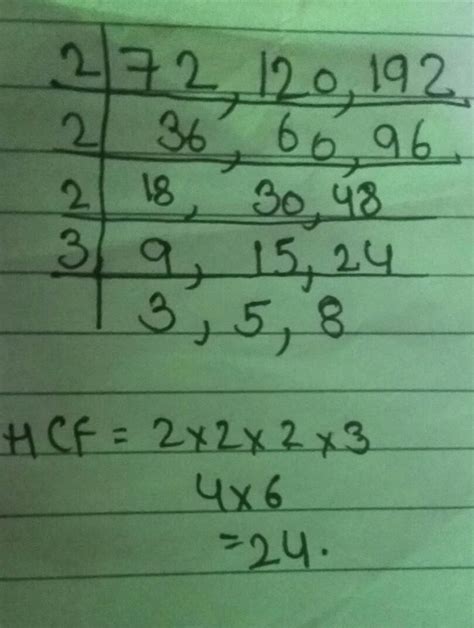 2 72, 120, 192
2 36, 60, 96
2 18, 30, 48
3 9, 15, 24
3, 5, 8
HCF = 2×2×2×3
4×6
=24.